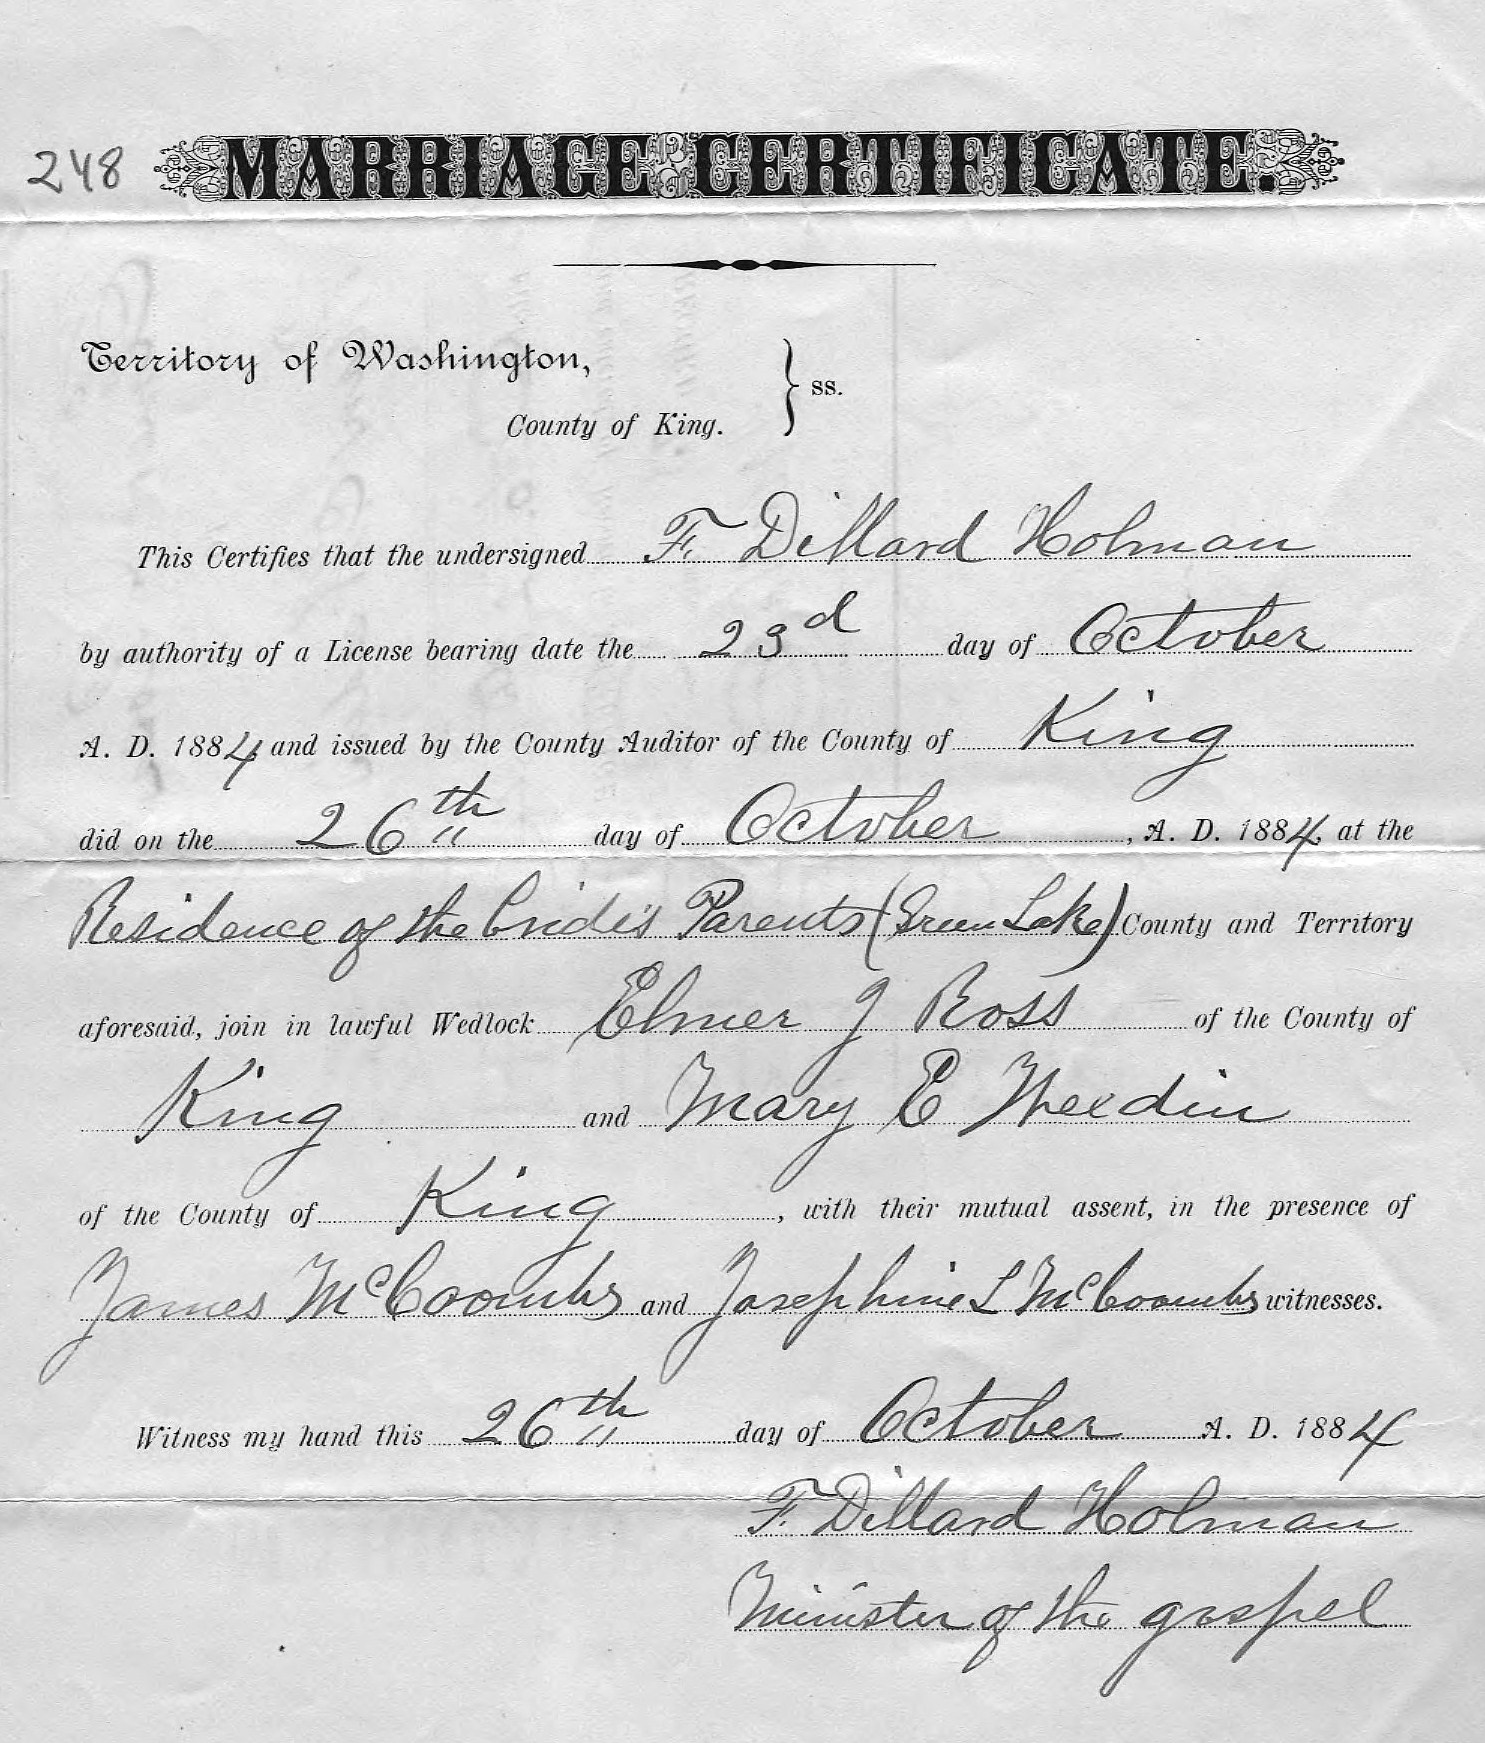 248
MARRIAGE CERTIFICATE.
Territory of Washington,
County of King. } ss.
This Certifies that the undersigned F. Dillard Holman
by authority of a License bearing date the 23d day of October
A. D. 1884, and issued by the County Auditor of the County of King
did on the 26th day of October, A. D. 1884, at the
Residence of the bride's Parents (Green Lake) County and Territory
aforesaid, join in lawful Wedlock Elmer J Ross of the County of
King and Mary E Weedin
of the County of King, with their mutual assent, in the presence of
James McCoombs and Josephine L McCoombs witnesses.
Witness my hand this 26th day of October A. D. 1884
F. Dillard Holman
Minister of the gospel